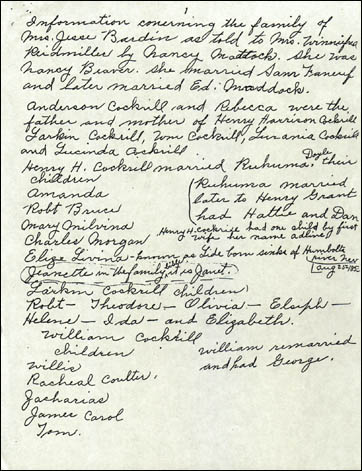 1
Information concerning the family of
Mrs. Jesse Bardin as told to Mrs. Winnifred
Reidmiller by Nancy Mattock. She was
Nancy Beaver. She married Sam
and later married Ed. Maddock.
Anderson Cockrill and Rebecca were the
father and mother of Henry Harrison Cockrill
Larkin Cockrill, Wm Cockrill, Lurania Cockrill
and Lucinda Cockrill
Henry H. Cockrill married Ruhuma Doyle, their
children
Amanda
Robt Bruce
Mary Milvina
Charles Morgan
(Ruhuma married
later to Henry Grant
had Hattie and Dan
Henry H. Cockrill had one child by first
wife her name Adline
Eliza Levina - known as Lide born sinks of Humbolt
river Nev
Aug 25-185
Jeanette in the family bible it is Janet.
Larkin Cockrill children:
Robt - Theodore - Olivia - Elsiph -
Helene - Ida - and Elizabeth.
William Cockrill
children
Willis
Racheal Coulter.
Zacharias
James Carol
Tom.
William remarried
and had George.